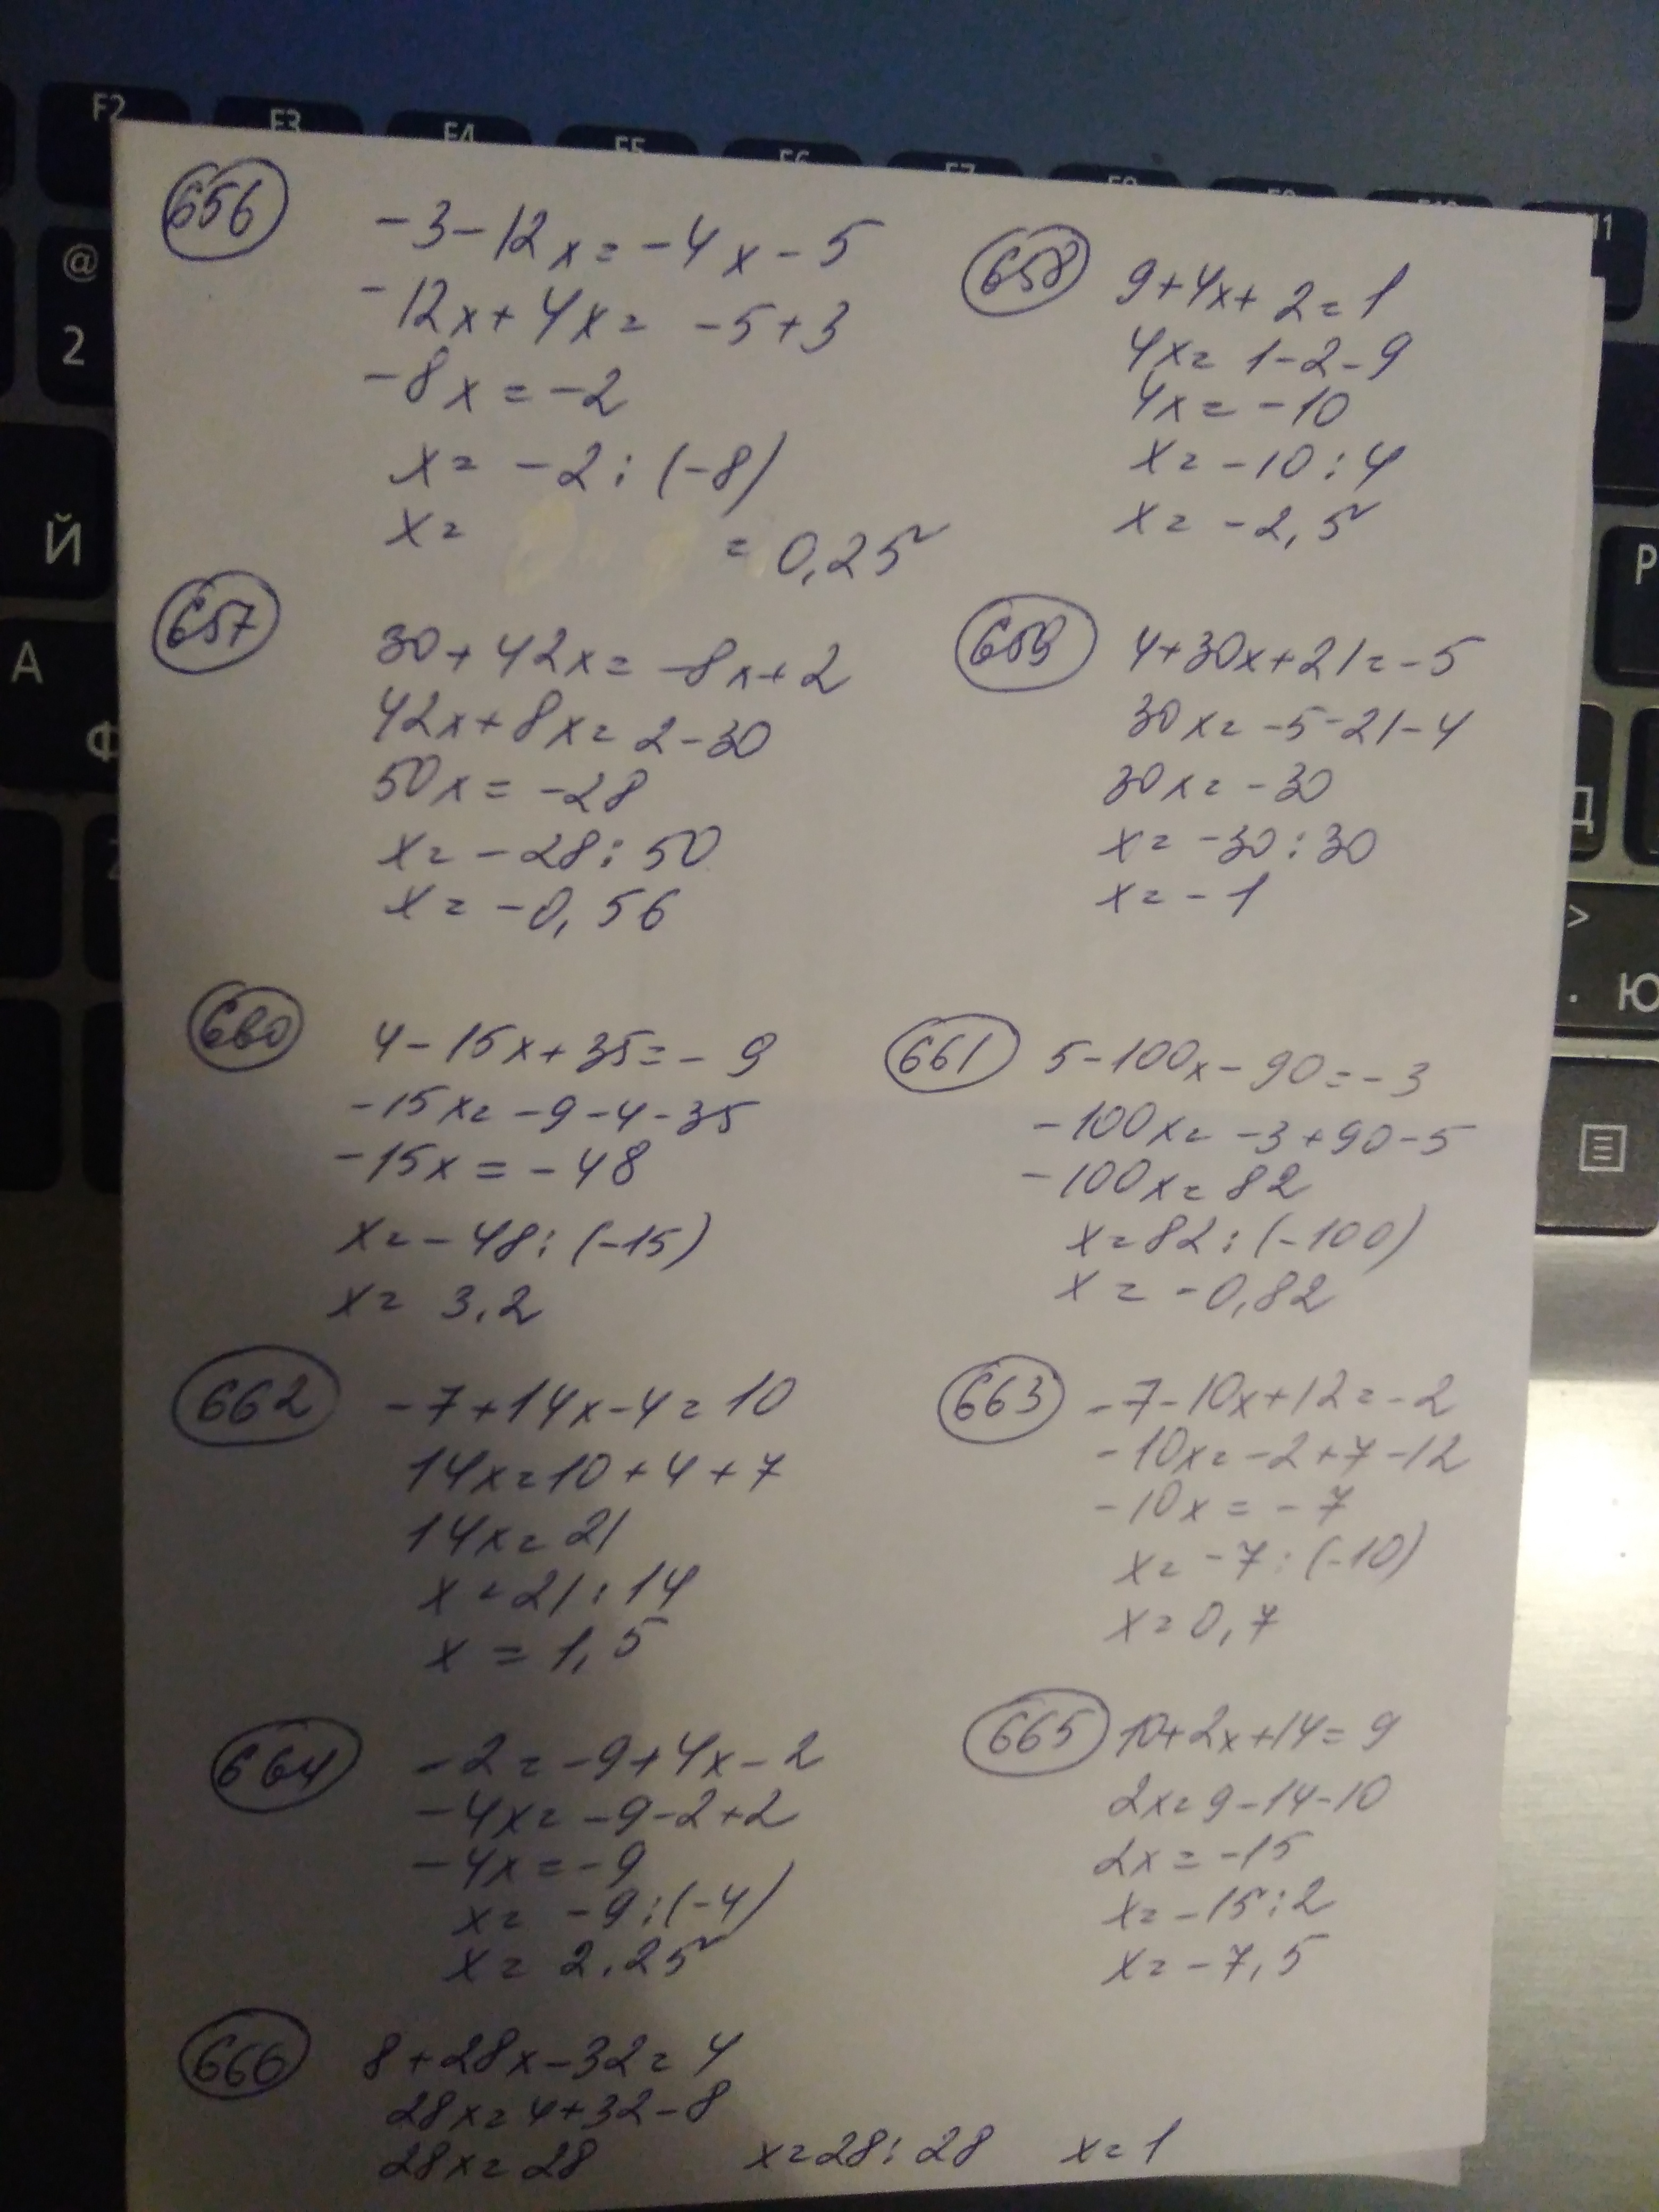 F2 F3 F4 F5 F6 F7
@
2
Й
А
Ф
Р
Д
>
. Ю
656
-3-12x=-4x-5
-12x+4x= -5+3
-8x=-2
x= -2:(-8)
x= =0,25
658
9+4x+2=1
4x= 1-2-9
4x=-10
x=-10:4
x=-2,5
657
30+42x=-8x+2
42x+8x=2-30
50x=-28
x=-28:50
x=-0,56
659
4+30x+21=-5
30x=-5-21-4
30x=-30
x=-30:30
x=-1
660
4-15x+35=-9
-15x=-9-4-35
-15x=-48
x=-48:(-15)
x= 3.2
661
5-100x-90=-3
-100x=-3+90-5
-100x=82
x=82:(-100)
x=-0,82
662
-7+14x-4=10
14x=10+4+7
14x=21
x=21:14
x=1,5
663
-7-10x+12=-2
-10x=-2+7-12
-10x=-7
x=-7:(-10)
x=0,7
664
-2=-9+4x-2
-4x=-9-2+2
-4x=-9
x= -9:(-4)
x= 2.25
665
10+2x+14=9
2x=9-14-10
2x=-15
x=-15:2
x=-7,5
666
8+28x-32=4
28x=4+32-8
28x=28 x=28:28 x=1